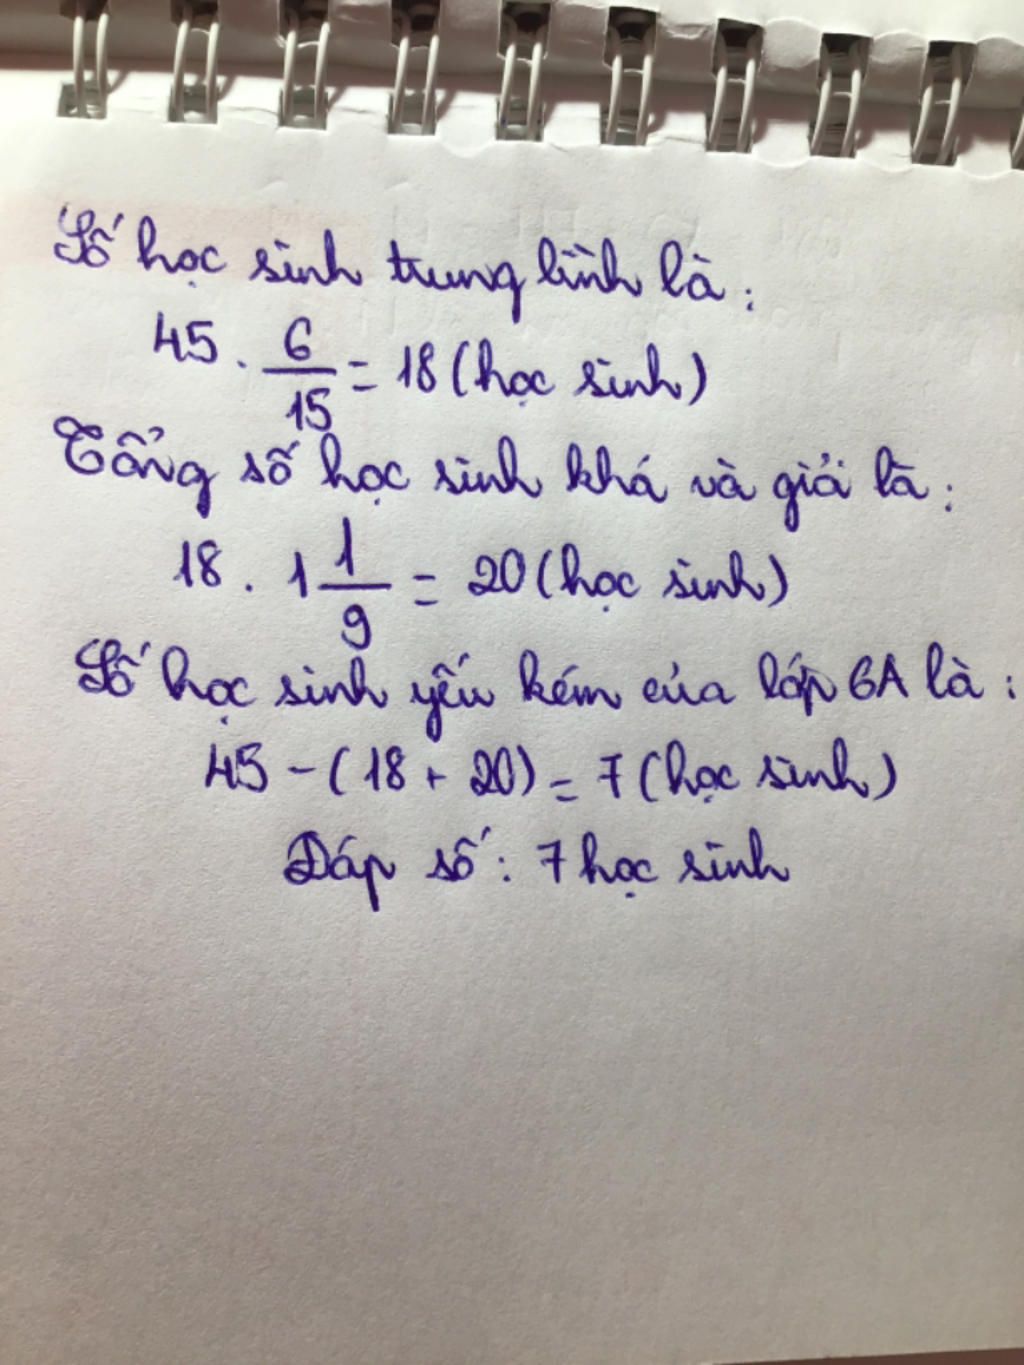 Số học sinh trung bình là:
45 . 6/15 = 18 (học sinh)
Tổng số học sinh khá và giỏi là:
18 . 1 1/9 = 20 (học sinh)
Số học sinh yếu kém của lớp 6A là:
45 - (18 + 20) = 7 (học sinh)
Đáp số: 7 học sinh